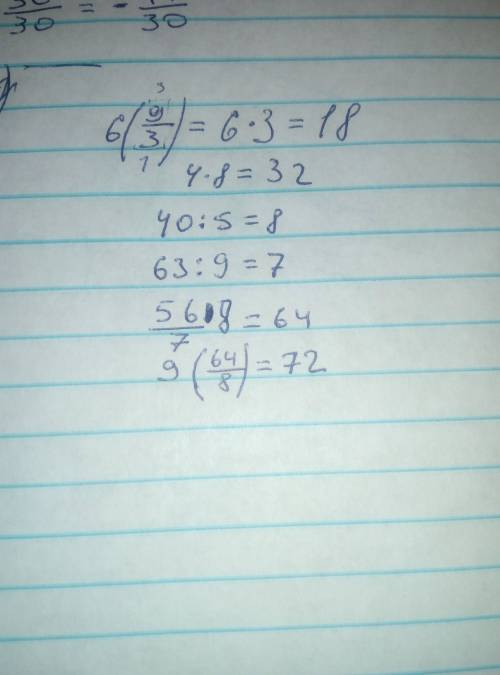 30/30 = - /30
6(9/3) = 6·3 = 18
4·8 = 32
40:5 = 8
63:9 = 7
56/7·8 = 64
9(64/8) = 72